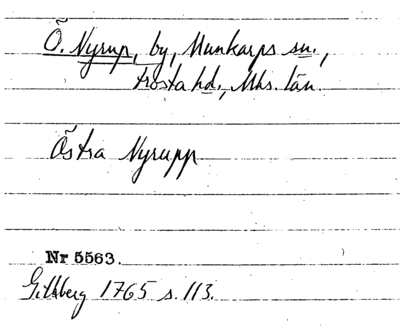 Ö. Nyrup, by, Munkarps sn.,
Frosta hd., Mhs. län.
Östra Nyrupp
Nr 5563.
Gillberg 1765 s. 113.